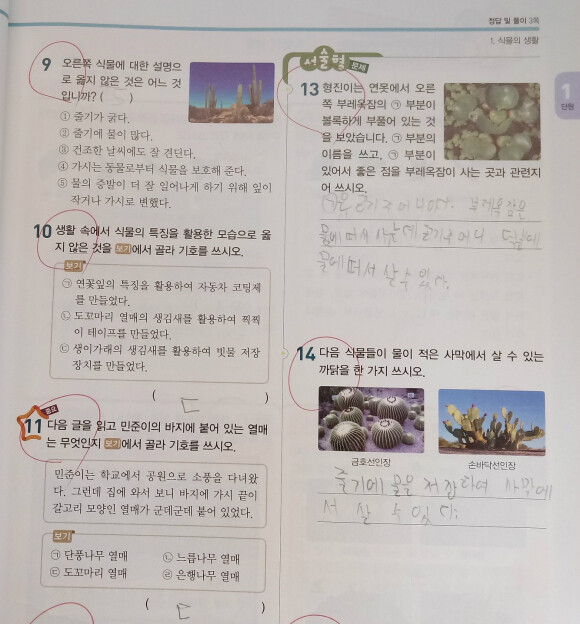 정답 및 풀이 3쪽
1. 식물의 생활
1
단원
9 오른쪽 식물에 대한 설명으
로 옳지 않은 것은 어느 것
입니까? ( 5 )
① 줄기가 굵다.
② 줄기에 물이 많다.
③ 건조한 날씨에도 잘 견딘다.
④ 가시는 동물로부터 식물을 보호해 준다.
⑤ 물의 증발이 더 잘 일어나게 하기 위해 잎이
작거나 가시로 변했다.
10 생활 속에서 식물의 특징을 활용한 모습으로 옳
지 않은 것을 보기에서 골라 기호를 쓰시오.
보기
㉠ 연꽃잎의 특징을 활용하여 자동차 코팅제
를 만들었다.
㉡ 도꼬마리 열매의 생김새를 활용하여 찍찍
이 테이프를 만들었다.
㉢ 생이가래의 생김새를 활용하여 빗물 저장
장치를 만들었다.
( ㄷ )
중요
11 다음 글을 읽고 민준이의 바지에 붙어 있는 열매
는 무엇인지 보기에서 골라 기호를 쓰시오.
민준이는 학교에서 공원으로 소풍을 다녀왔
다. 그런데 집에 와서 보니 바지에 가시 끝이
갈고리 모양인 열매가 군데군데 붙어 있었다.
보기
㉠ 단풍나무 열매 ㉡ 느릅나무 열매
㉢ 도꼬마리 열매 ㉣ 은행나무 열매
( ㄷ )
서술형 문제
13 형진이는 연못에서 오른
쪽 부레옥잠의 ㉠ 부분이
볼록하게 부풀어 있는 것
을 보았습니다. ㉠ 부분의
이름을 쓰고, ㉠ 부분이
있어서 좋은 점을 부레옥잠이 사는 곳과 관련지
어 쓰시오.
공기주머니이다. 부레옥잠은
물에 떠서 사는데 공기주머니 때문에
물에 떠서 살 수 있다.
14 다음 식물들이 물이 적은 사막에서 살 수 있는
까닭을 한 가지 쓰시오.
금호선인장 손바닥선인장
줄기에 물을 저장하여 사막에
서 살 수 있다.